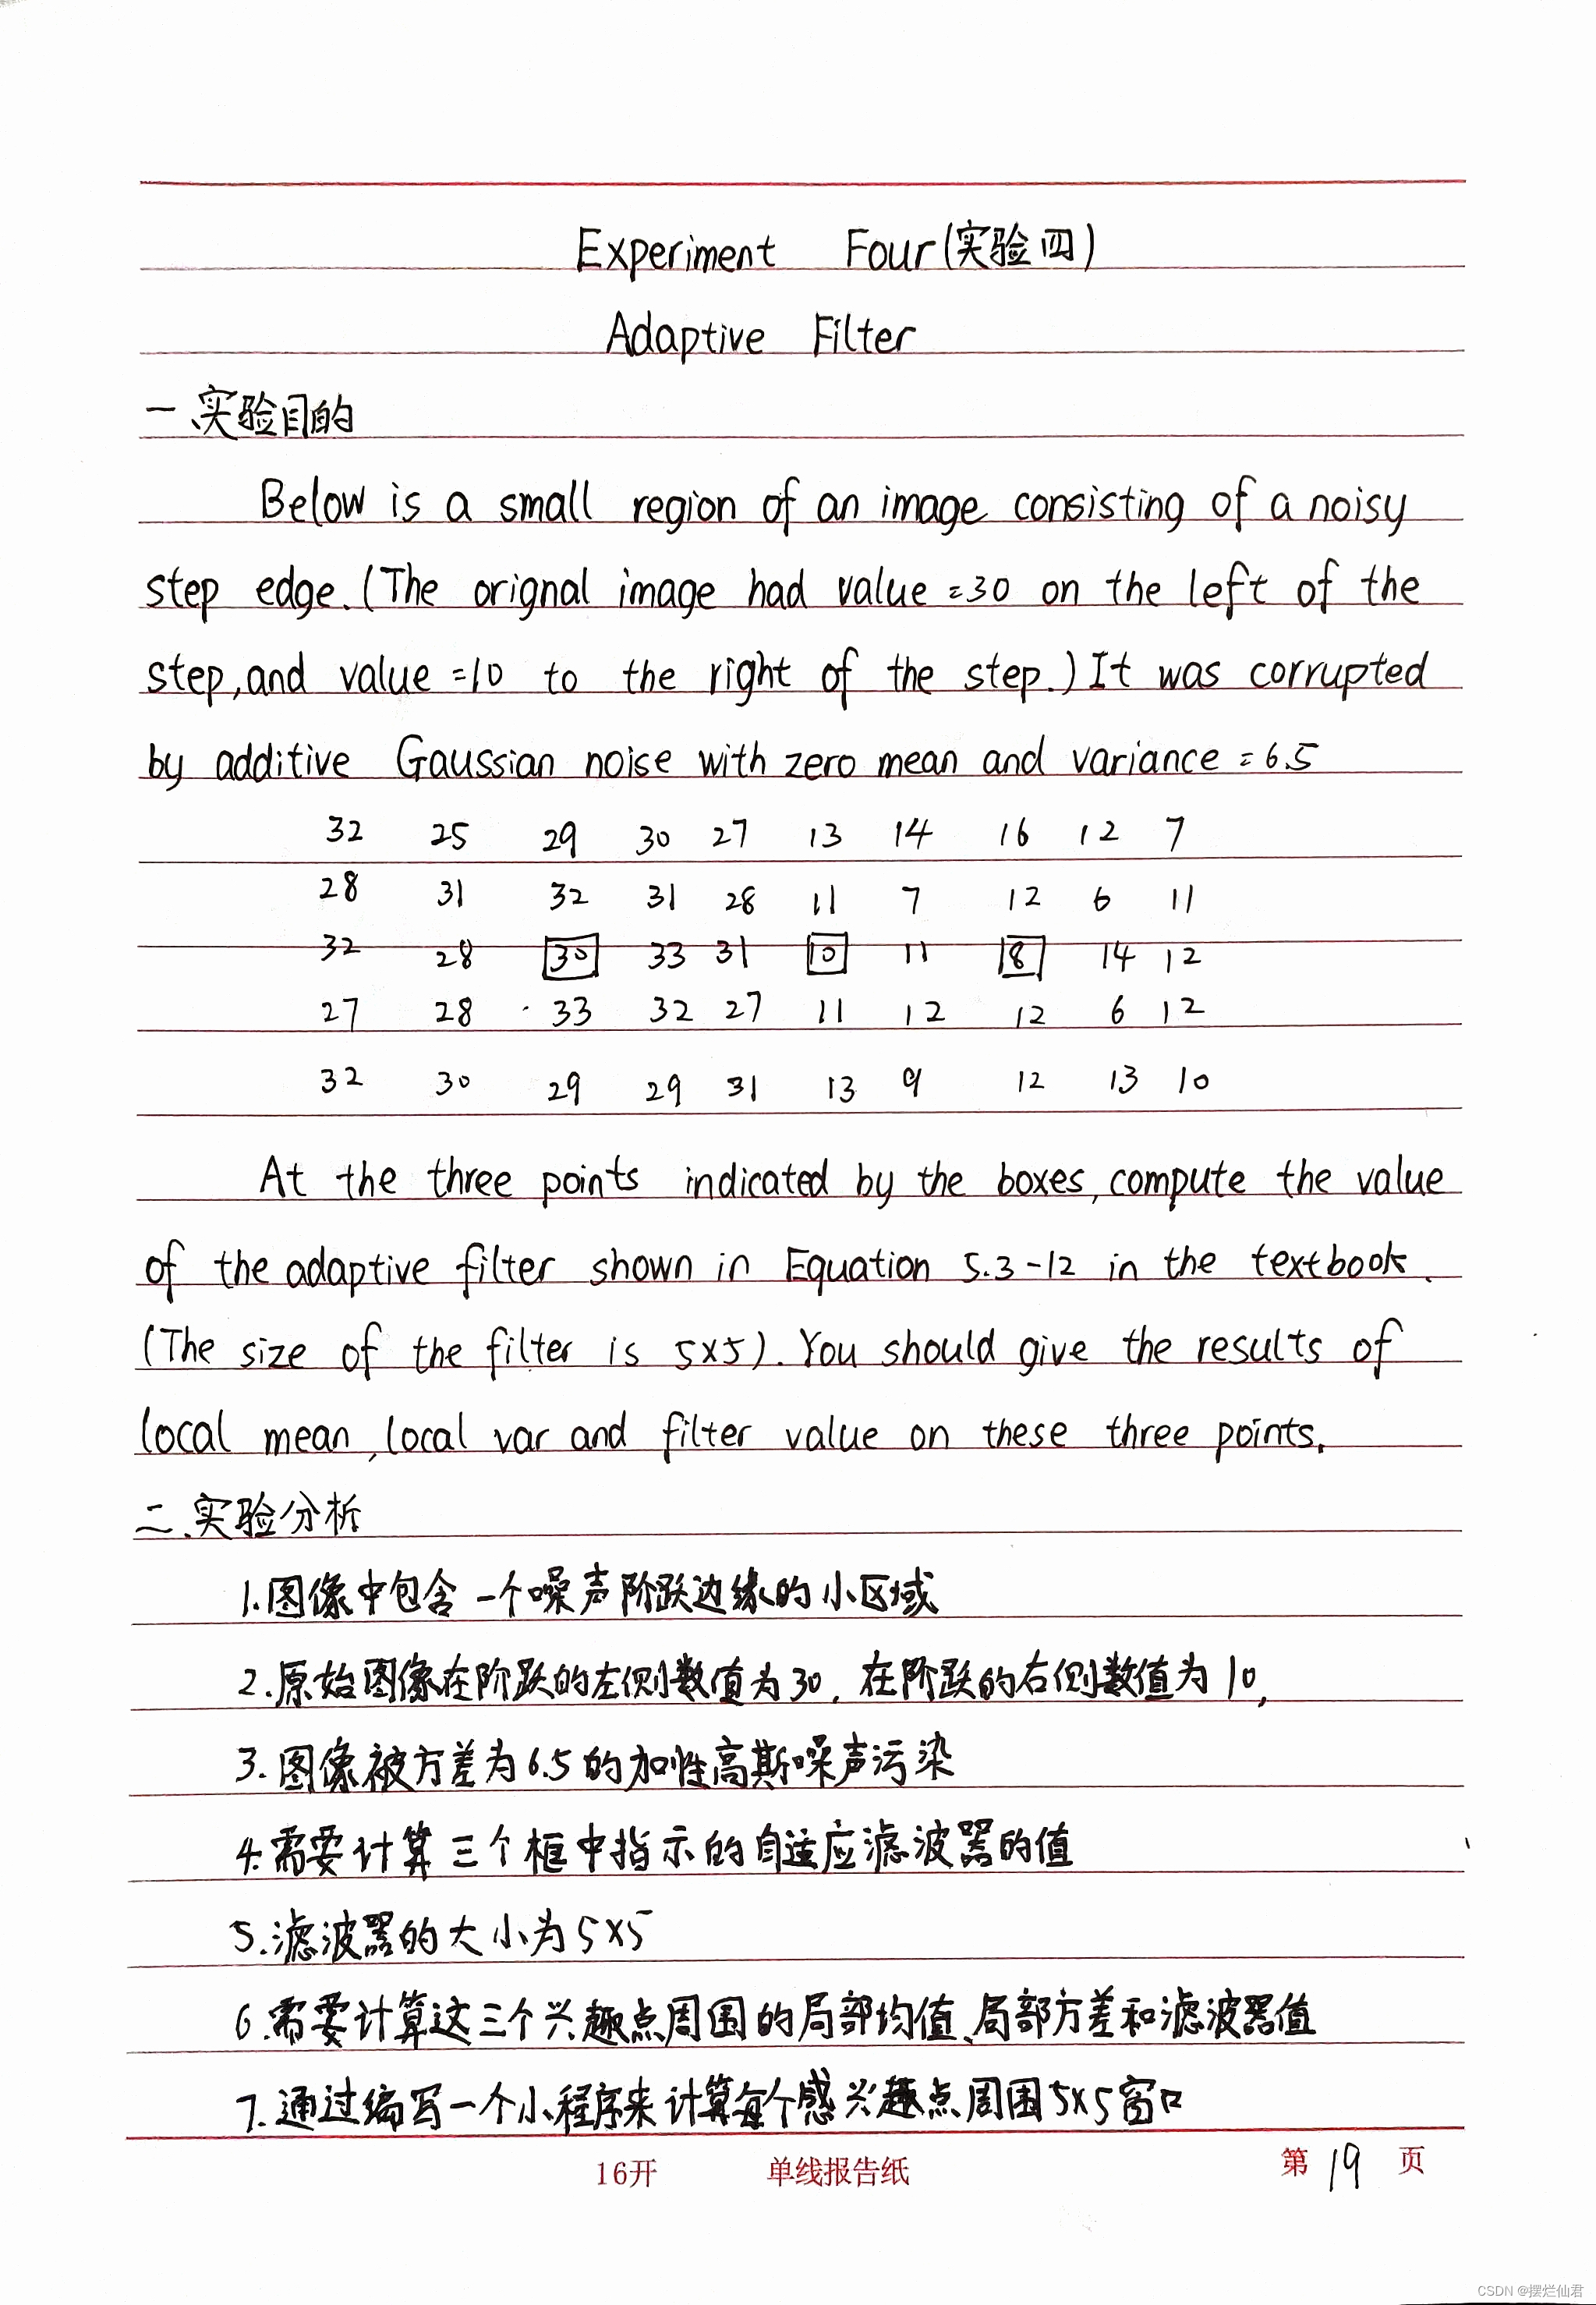 Experiment Four(实验四)
Adaptive Filter
一、实验目的
Below is a small region of an image consisting of a noisy
step edge.(The orignal image had value =30 on the left of the
step,and value =10 to the right of the step.)It was corrupted
by additive Gaussian noise with zero mean and variance =6.5
32 25 29 30 27 13 14 16 12 7
28 31 32 31 28 11 7 12 6 11
32 28 30 33 31 10 11 8 14 12
27 28 33 32 27 11 12 12 6 12
32 30 29 29 31 13 9 12 13 10
At the three points indicated by the boxes,compute the value
of the adaptive filter shown in Equation 5.3-12 in the textbook.
(The size of the filter is 5×5).You should give the results of
local mean,local var and filter value on these three points.
二、实验分析
1.图像中包含一个噪声阶跃边缘的小区域
2.原始图像在阶跃的左侧数值为30,在阶跃的右侧数值为10,
3.图像被方差为6.5的加性高斯噪声污染
4.需要计算三个框中指示的自适应滤波器的值
5.滤波器的大小为5×5
6.需要计算这三个兴趣点周围的局部均值、局部方差和滤波器值
7.通过编写一个小程序来计算每个感兴趣点周围5×5窗口
16开 单线报告纸 第19页
CSDN @摆烂仙君